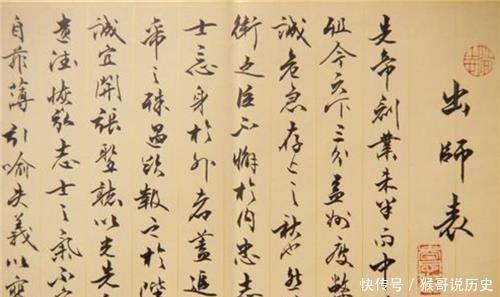 出師表
先帝創業未半而中
殂今天下三分益州疲弊
誠危急存亡之秋也然
衛之臣不懈於内忠志
士忘身於外者蓋追
帝之殊遇欲報之於陛
誠宜開張聖聽以光先
遺德恢弘志士之氣不
自菲薄引喻失義以塞
快传号 / 猴哥说历史